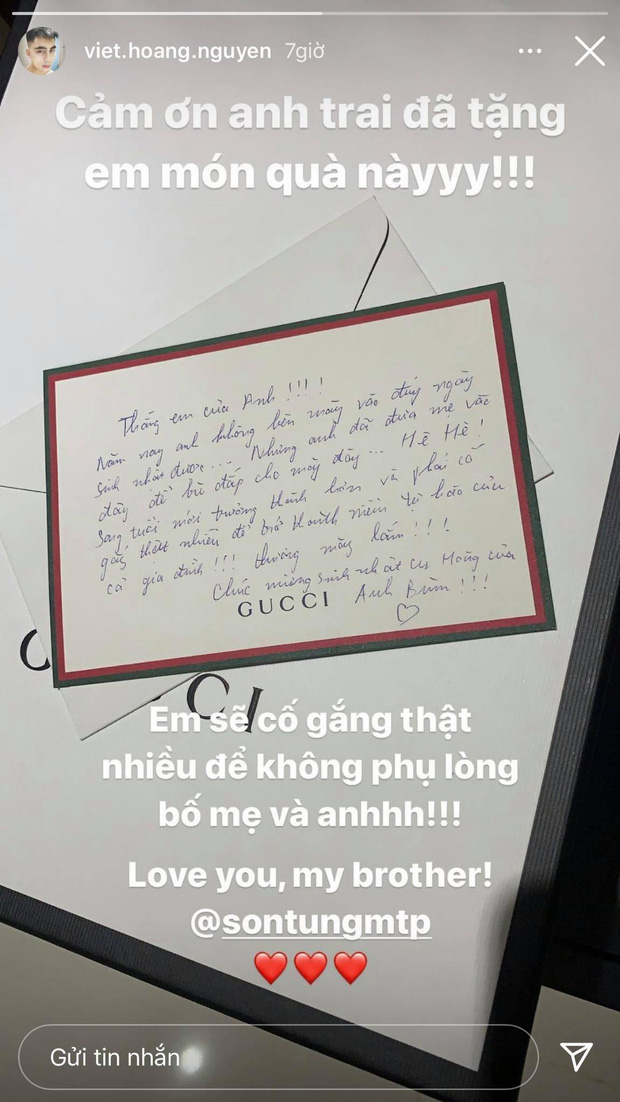 viet.hoang.nguyen 7giờ
Cảm ơn anh trai đã tặng
em món quà nàyyy!!!
Thằng em của Anh !!!!
Năm nay anh không bên mày vào đúng ngày
sinh nhật được... Nhưng anh đã đưa mẹ vào
đây để bù đắp cho mày đây... Hê Hê!
Sang tuổi mới trưởng thành hơn và phải cố
gắng thật nhiều để trở thành niềm tự hào của
cả gia đình!!! thương mày lắm!!!
Chúc mừng sinh nhật cu Hoàng của
Anh Bùm !!!
GUCCI
CI
Em sẽ cố gắng thật
nhiều để không phụ lòng
bố mẹ và anhhh!!!
Love you, my brother!
@sontungmtp
❤️❤️❤️
Gửi tin nhắn